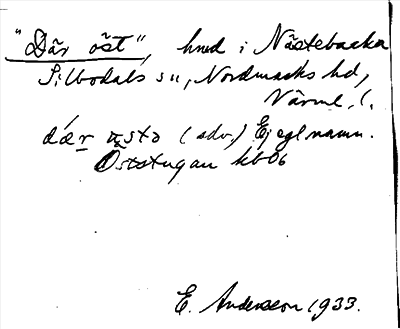 "Där öst", hmd i Nästebacka
Silbodals sn, Nordmarks hd,
Värml. l.
dǽr ɷ̨sta (adv.) Ej egl namn.
Öststugan kb06
E. Andersson 1933.